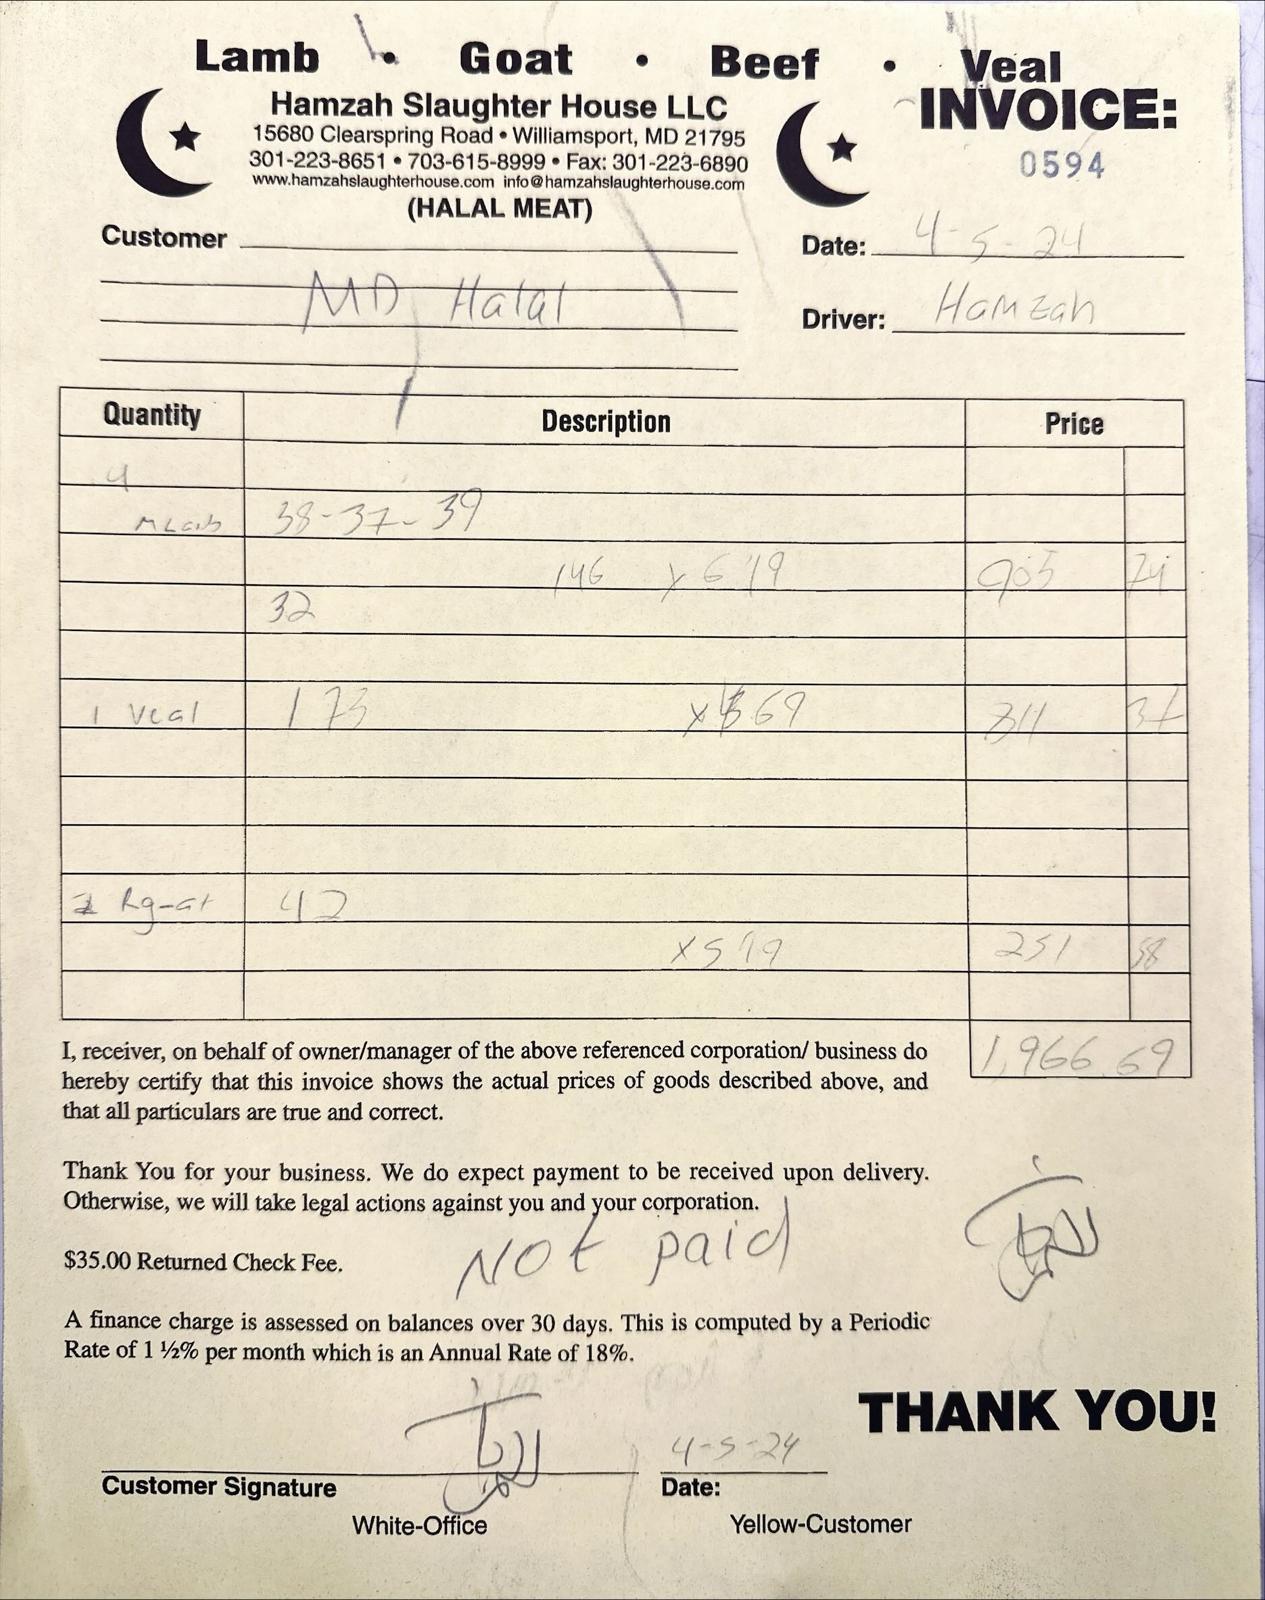 Lamb • Goat • Beef • Veal
Hamzah Slaughter House LLC
15680 Clearspring Road • Williamsport, MD 21795
301-223-8651 • 703-615-8999 • Fax: 301-223-6890
www.hamzahslaughterhouse.com info@hamzahslaughterhouse.com
(HALAL MEAT)
INVOICE:
0594
Customer
MD Halal
Date: 4-5-24
Driver: Hamzah
Quantity Description Price
4
38-37-39
146 x 6 19 905 74
32
1 Veal 173 x 69 811 37
42
x 5 99 251 58
1,966.69
I, receiver, on behalf of owner/manager of the above referenced corporation/ business do
hereby certify that this invoice shows the actual prices of goods described above, and
that all particulars are true and correct.
Thank You for your business. We do expect payment to be received upon delivery.
Otherwise, we will take legal actions against you and your corporation.
NOt paid
$35.00 Returned Check Fee.
A finance charge is assessed on balances over 30 days. This is computed by a Periodic
Rate of 1 ½% per month which is an Annual Rate of 18%.
THANK YOU!
4-5-24
Customer Signature Date:
White-Office Yellow-Customer